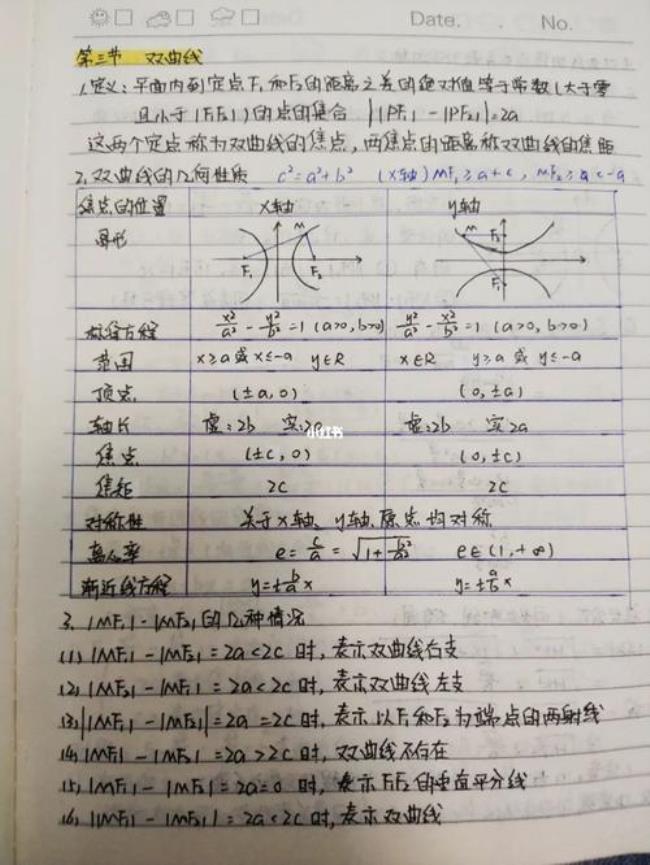 Date. . No.
第三节 双曲线
1.定义：平面内到定点F₁和F₂的距离之差的绝对值等于常数(大于零
且小于|F₁F₂|)的点的集合 ||PF₁|-|PF₂||=2a
这两个定点称为双曲线的焦点，两焦点的距离称双曲线的焦距
2.双曲线的几何性质 c²=a²+b² (x轴)MF₁≥a+c，MF₂≥
焦点的位置 x轴 y轴
图形 M F₁ F₂ M F₂ F₁
标准方程 x²/a²-y²/b²=1(a>0,b>0) y²/a²-x²/b²=1(a>0,b>0)
范围 x≥a或x≤-a y∈R x∈R y≥a或y≤-a
顶点 (±a,0) (0,±a)
轴长 虚:2b 实:2a 虚:2b 实2a
小红书
焦点 (±c,0) (0,±c)
焦距 2c 2c
对称性 关于x轴、y轴、原点均对称
离心率 e=c/a=√(1+b²/a²) e∈(1,+∞)
渐近线方程 y=±b/a x y=±a/b x
3.|MF₁|-|MF₂|的几种情况
(1)|MF₁|-|MF₂|=2a<2c时，表示双曲线右支
(2)|MF₂|-|MF₁|=2a<2c时，表示双曲线左支
(3)||MF₁|-|MF₂||=2a=2c时，表示以F₁和F₂为端点的两射线
(4)|MF₁|-|MF₂|=2a>2c时，双曲线不存在
(5)|MF₁|-|MF₂|=2a=0时，表示F₁F₂的垂直平分线
(6)||MF₁|-|MF₂||=2a<2c时，表示双曲线